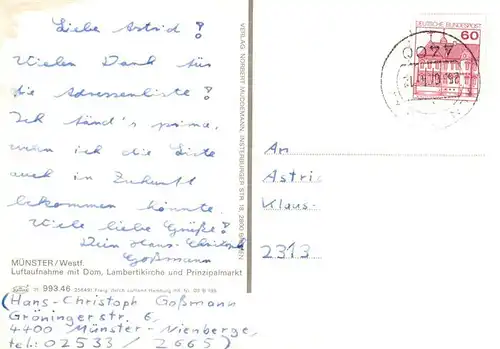 Liebe Astrid!
Vielen Dank für
die Adressenliste!
Ich fänd's prima,
wenn ich die Liste
auch in Zukunft
bekommen könnte.
Viele liebe Grüße!
Dein Hans-Christoph
Goßmann
MÜNSTER/Westf.
Luftaufnahme mit Dom, Lambertikirche und Prinzipalmarkt
993.46
(Hans-Christoph Goßmann
Gröningerstr. 6,
4400 Münster-Nienberge,
tel.: 02533 / 2665)
VERLAG NORBERT MUDDEMANN, INSTERBURGER STR. 18, 2800 BREMEN
DEUTSCHE BUNDESPOST
60
4400
An
Astrid
Klaus-
2313